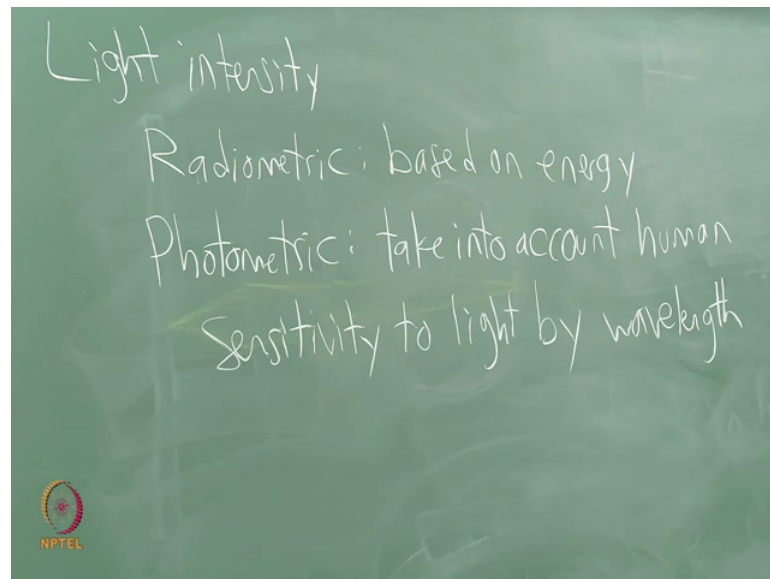 Light intensity
Radiometric: based on energy
Photometric: take into account human
sensitivity to light by wavelength
NPTEL